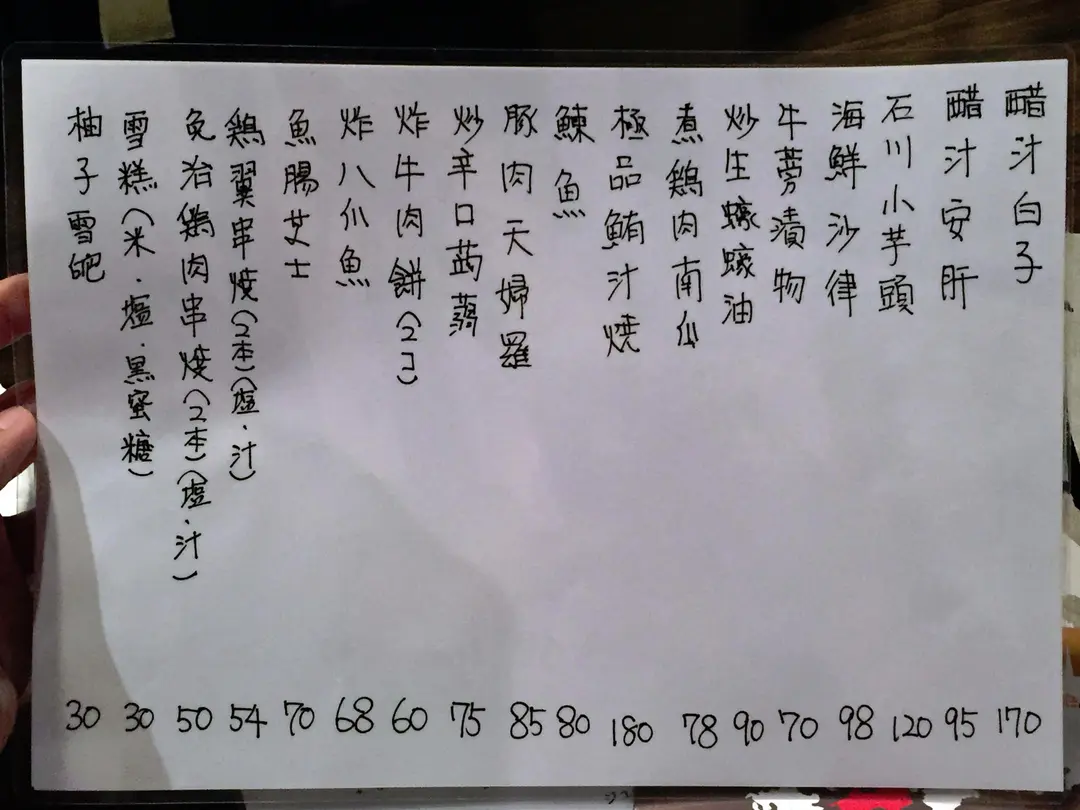 醋汁白子 170
醋汁安肝 95
石川小芋頭 120
海鮮沙律 98
牛蒡漬物 70
炒生蠔蠔油 90
煮鶏肉南瓜 78
極品鮪汁焼 180
鰊魚 80
豚肉天婦羅 85
炒辛口蒟蒻 75
炸牛肉餅(2コ) 60
炸八爪魚 68
魚腸芝士 70
鶏翼串燒(2本)(塩·汁) 54
免治鶏肉串燒(2本)(塩·汁) 50
雪糕(米·塩·黒蜜糖) 30
柚子雪葩 30